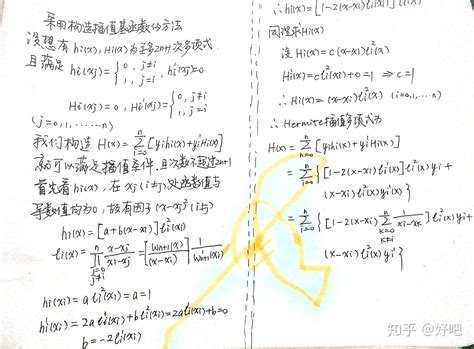 采用构造插值基函数的方法
设想有 hi(x), Hi(x) 为至多2n+1次多项式
且满足 hi(xj) = { 0, j≠i  1, j=i , h'i(xj)=0
Hi(xj)=0, H'i(xj) = { 0, j≠i  1, j=i
(j=0,1,……,n)
我们构造 H(x)= Σ_{i=0}^{n} [yihi(x)+yi'Hi(x)]
就可以满足插值条件 且次数不超过2n+1
首先看hi(x), 在xj(i≠j)处函数值与
导数值均为0, 故有因子(x-xj)²(i≠j)
hi(x) = [a+b(x-xi)] li²(x)
li(x) = ∏_{j=0, j≠i}^{n} (x-xj)/(xi-xj) = [Wn+1(x)/(x-xi)] 1/W'n+1(xi)
hi(xi) = a li²(xi) = a = 1
hi'(xi) = 2a li'(xi) + b li²(xi) = 2a li'(xi) + b = 0
b = -2li'(xi)
∴ hi(x) = [1-2(x-xi)li'(xi)] li²(x)
同理求Hi(x)
设 Hi(x) = c(x-xi) li²(x)
Hi'(xi) = c li²(xi) + 0 = 1 ⇒ c = 1
∴ Hi(x) = (x-xi) li²(x) (i=0,1,……,n)
∴ Hermite插值多项式为
H(x) = Σ_{i=0}^{n} [yihi(x)+yi'Hi(x)]
= Σ_{i=0}^{n} { [1-2(x-xi)li'(xi)] li²(x) yi +
(x-xi) li²(x) yi'(x) }
= Σ_{i=0}^{n} { [1-2(x-xi) Σ_{k=0, k≠i}^{n} 1/(xi-xk)] li²(x) yi +
(x-xi) li²(x) yi' }
知乎 @好吧